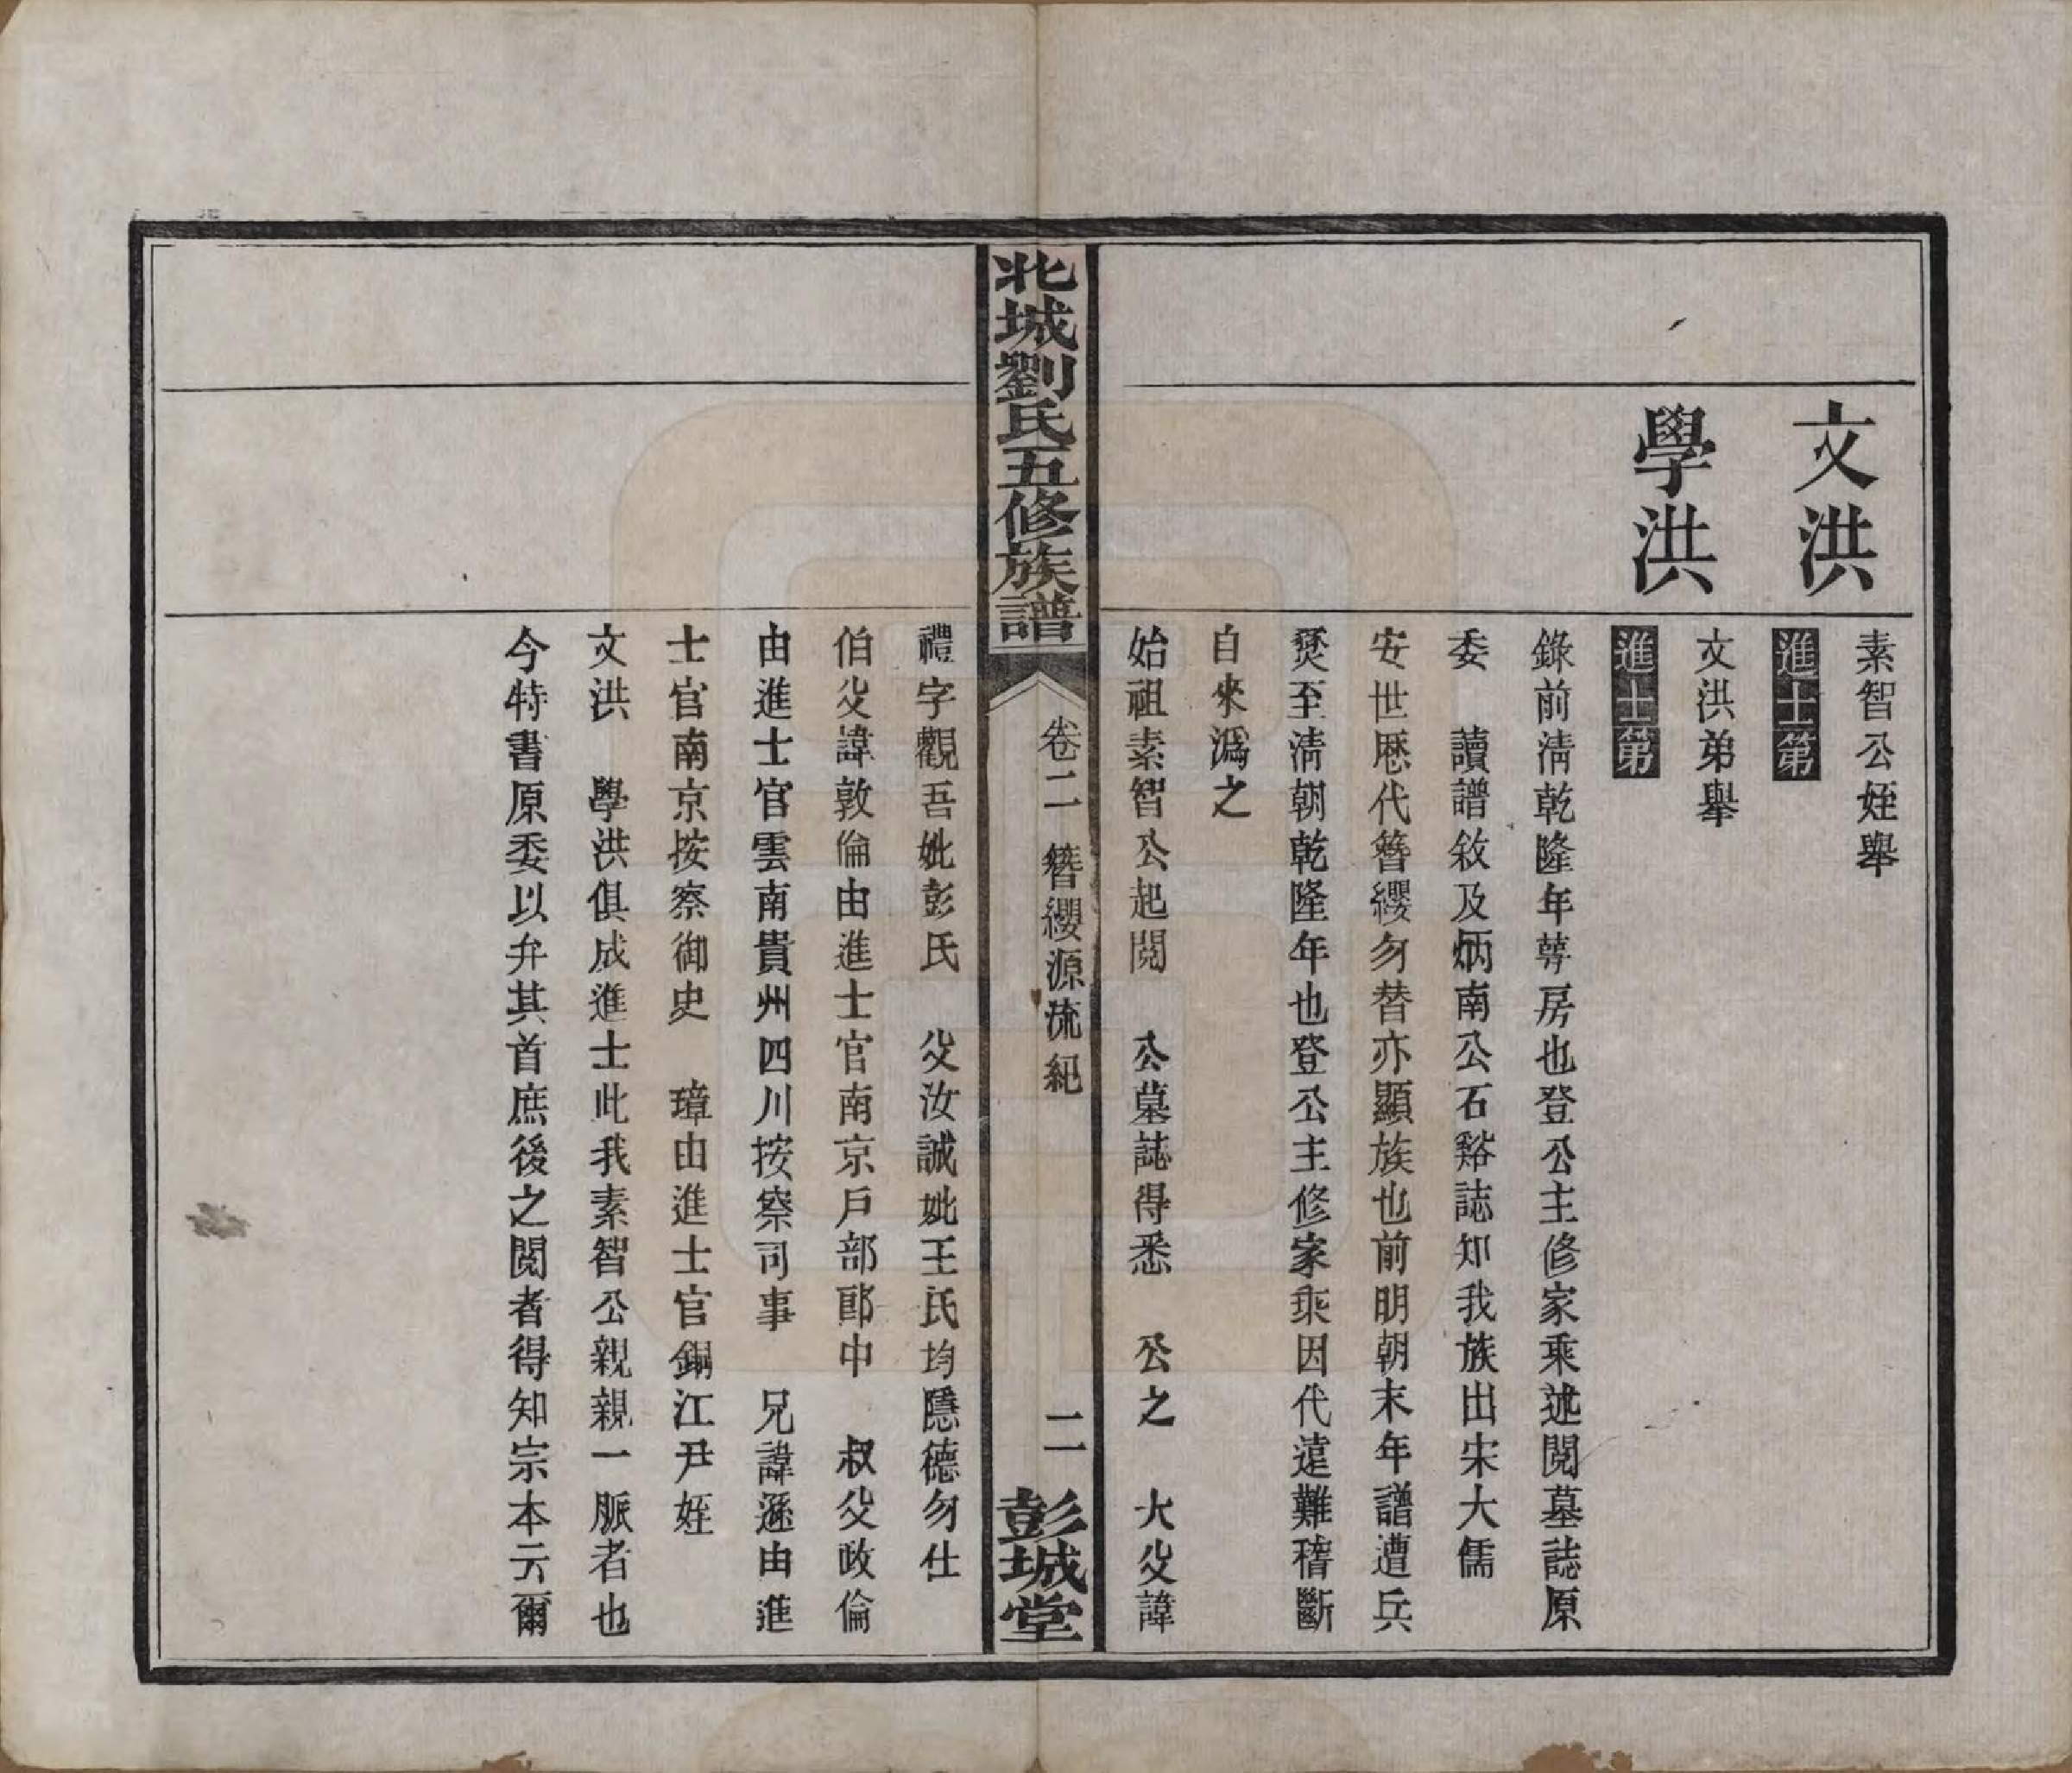 文洪
素智公姪舉
進士第
學洪
文洪弟舉
進士第
錄前淸乾隆年蓴房也登公主修家乘述閱墓誌原
委　讀譜敘及炳南公石谿誌知我族出宋大儒
安世厯代簪纓勿替亦顯族也前明朝末年譜遭兵
燹至淸朝乾隆年也登公主修家乘因代遠難稽斷
自來潙之
始祖素智公起閱　公墓誌得悉　公之　大父諱
北城劉氏五修族譜
卷二　簪纓源流紀
二
彭城堂
禮字觀吾妣彭氏　父汝誠妣王氏均隱德勿仕
伯父諱敦倫由進士官南京戶部郎中　叔父政倫
由進士官雲南貴州四川按察司事　兄諱遜由進
士官南京按察御史　璋由進士官錦江尹姪
文洪　學洪俱成進士此我素智公親親一脈者也
今特書原委以弁其首庶後之閱者得知宗本云爾